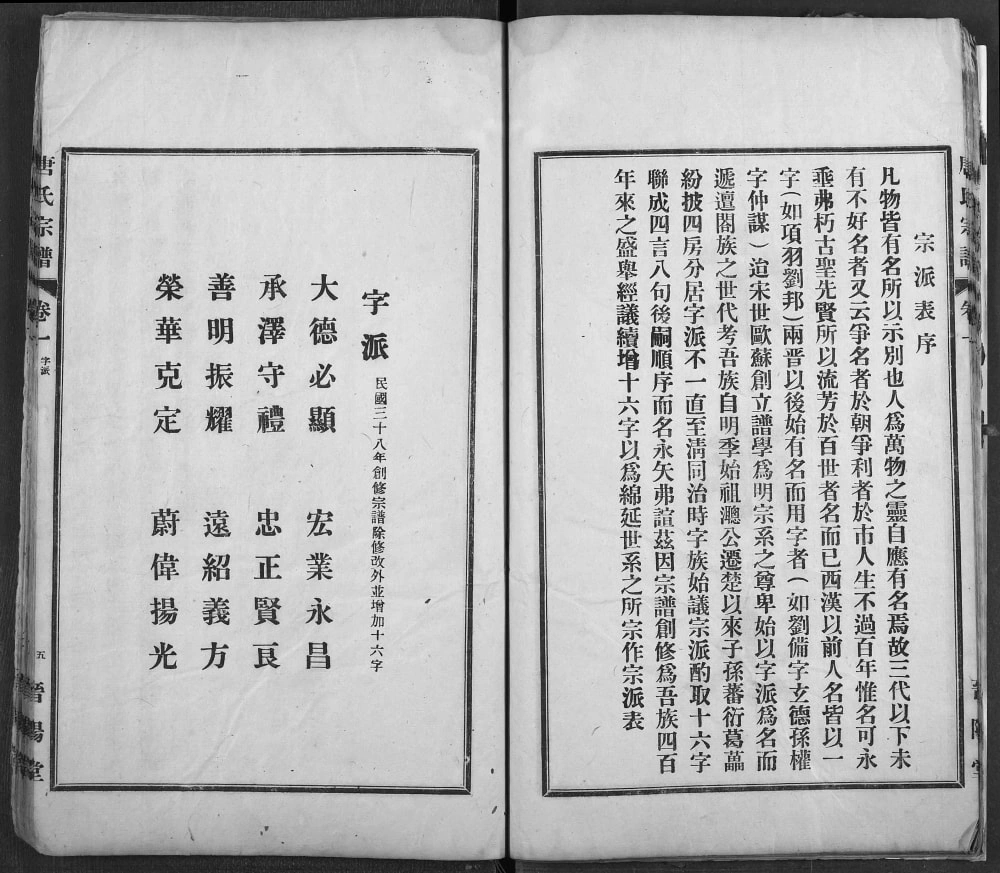 宗派表序
凡物皆有名所以示別也人爲萬物之靈自應有名焉故三代以下未
有不好名者又云爭名者於朝爭利者於市人生不過百年惟名可永
垂弗朽古聖先賢所以流芳於百世者名而已西漢以前人名皆以一
字(如項羽劉邦)兩晋以後始有名而用字者(如劉備字玄德孫權
字仲謀)迨宋世歐蘇創立譜學爲明宗系之尊卑始以字派爲名而
遞遵閤族之世代考吾族自明季始祖潓公遷楚以來子孫蕃衍葛藟
紛披四房分居字派不一直至淸同治時字族始議宗派酌取十六字
聯成四言八句後嗣順序而名永矢弗諠茲因宗譜創修爲吾族四百
年來之盛舉經議續增十六字以爲綿延世系之所宗作宗派表
唐氏宗譜 卷一 字派 五 晉陽堂
字派 民國三十八年創修宗譜除修改外並增加十六字
大德必顯 宏業永昌
承澤守禮 忠正賢良
善明振耀 遠紹義方
榮華克定 蔚偉揚光